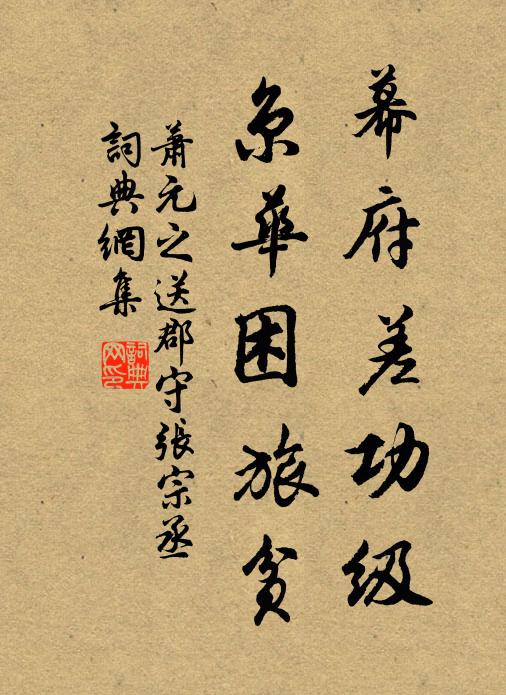 幕府差功級
京華困旅貧
蕭元之送郡守張宗丞
詞典網集
詞典网印